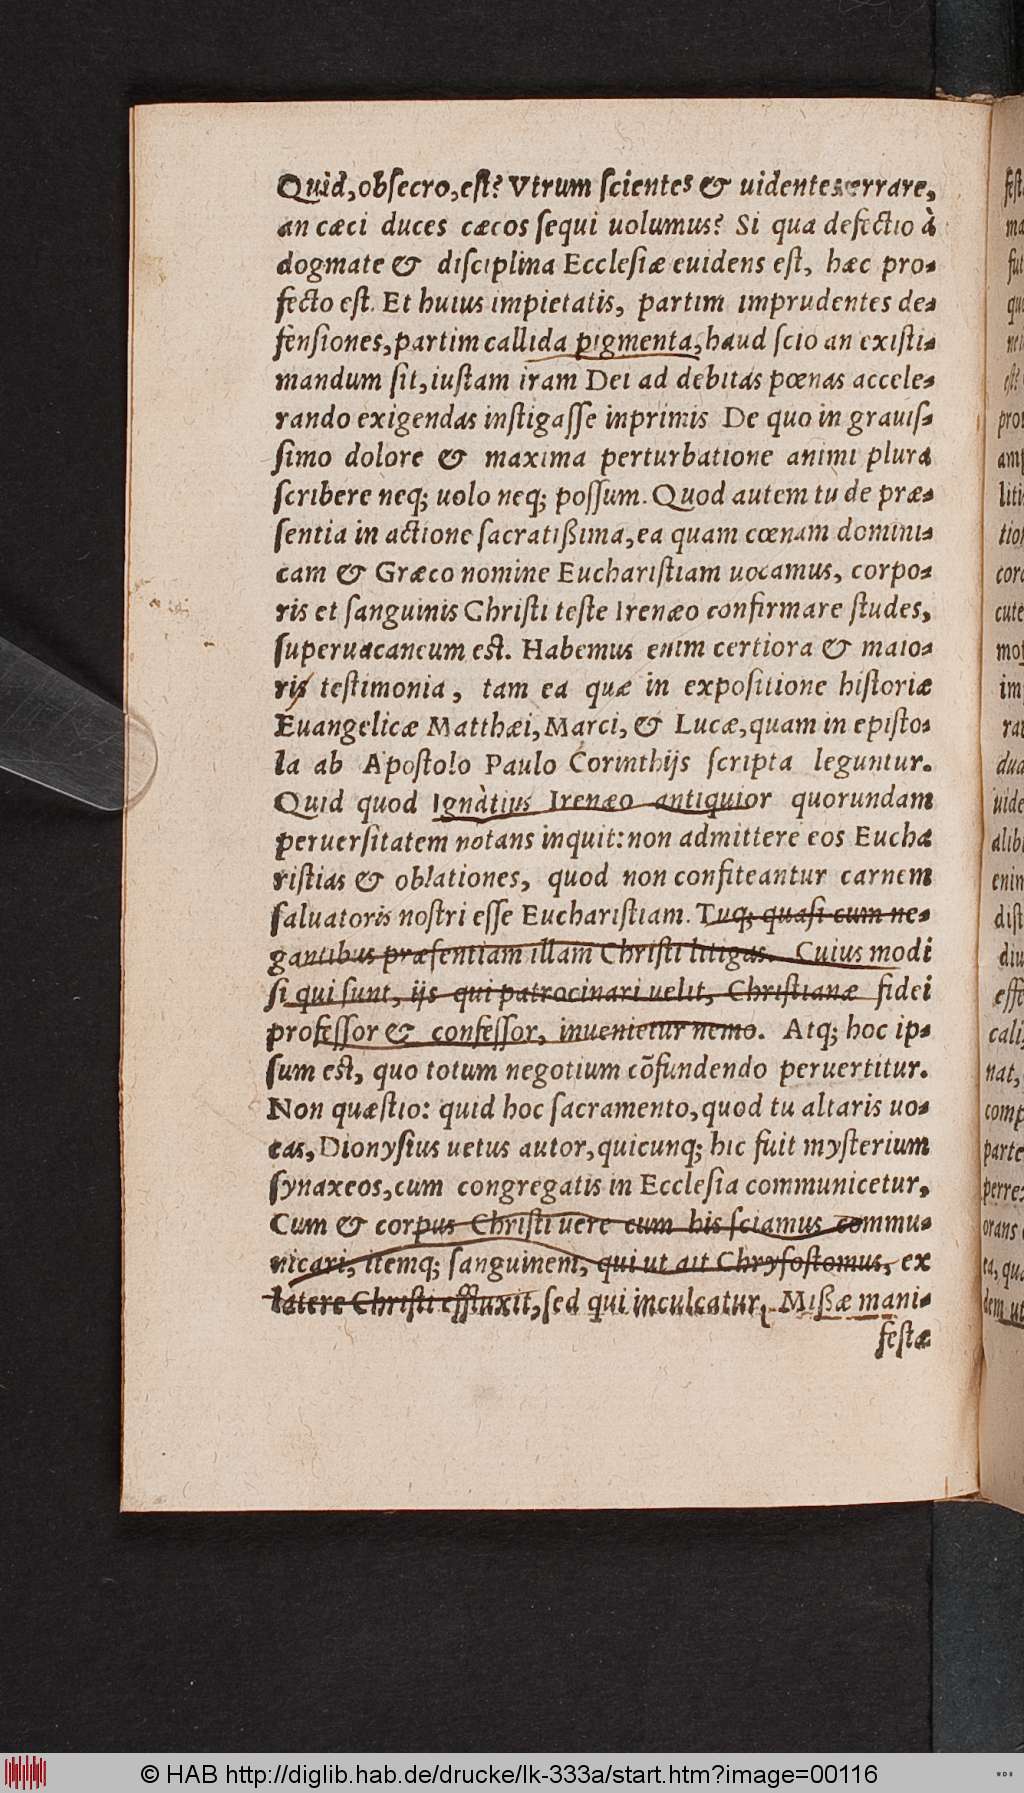 Quid, obſecro, eſt? Vtrum ſcientes & uidentes errare,
an cæci duces cæcos ſequi uolumus? Si qua defectio à
dogmate & diſciplina Eccleſiæ euidens eſt, hæc pro-
fecto eſt. Et huius impietatis, partim imprudentes de-
fenſiones, partim callida pigmenta, haud ſcio an exiſti-
mandum ſit, iuſtam iram Dei ad debitas pœnas accele-
rando exigendas inſtigaſſe inprimis De quo in grauiſ-
ſimo dolore & maxima perturbatione animi plura
ſcribere neq; uolo neq; poſſum. Quod autem tu de præ-
ſentia in actione ſacratißima, ea quam cœnam domini-
cam & Græco nomine Euchariſtiam uocamus, corpo-
ris et ſanguinis Chriſti teſte Irenæo confirmare ſtudes,
ſuperuacaneum eſt. Habemus enim certiora & maio-
ris teſtimonia, tam ea quæ in expoſitione hiſtoriæ
Euangelicæ Matthæi, Marci, & Lucæ, quam in epiſto-
la ab Apoſtolo Paulo Corinthijs ſcripta leguntur.
Quid quod Ignàtius Irenæo antiquior quorundam
peruerſitatem notans inquit: non admittere eos Eucha
riſtias & oblationes, quod non confiteantur carnem
ſaluatoris noſtri eſſe Euchariſtiam. Tuq; quaſi cum ne-
gantibus præſentiam illam Chriſti litigas. Cuius modi
ſi qui ſunt, ijs qui patrocinari uelit, Chriſtianæ fidei
profeſſor & confeſſor, inuenietur nemo. Atq; hoc ip-
ſum eſt, quo totum negotium cõfundendo peruertitur.
Non quæſtio: quid hoc ſacramento, quod tu altaris uo-
cas, Dionyſius uetus autor, quicunq; hic fuit myſterium
ſynaxeos, cum congregatis in Eccleſia communicetur,
Cum & corpus Chriſti uere cum his ſciamus commu-
nicari, itemq; ſanguinem, qui ut ait Chryſoſtomus, ex
latere Chriſti effluxit, ſed qui inculcatur, Mißæ mani-
feſtæ
© HAB http://diglib.hab.de/drucke/lk-333a/start.htm?image=00116